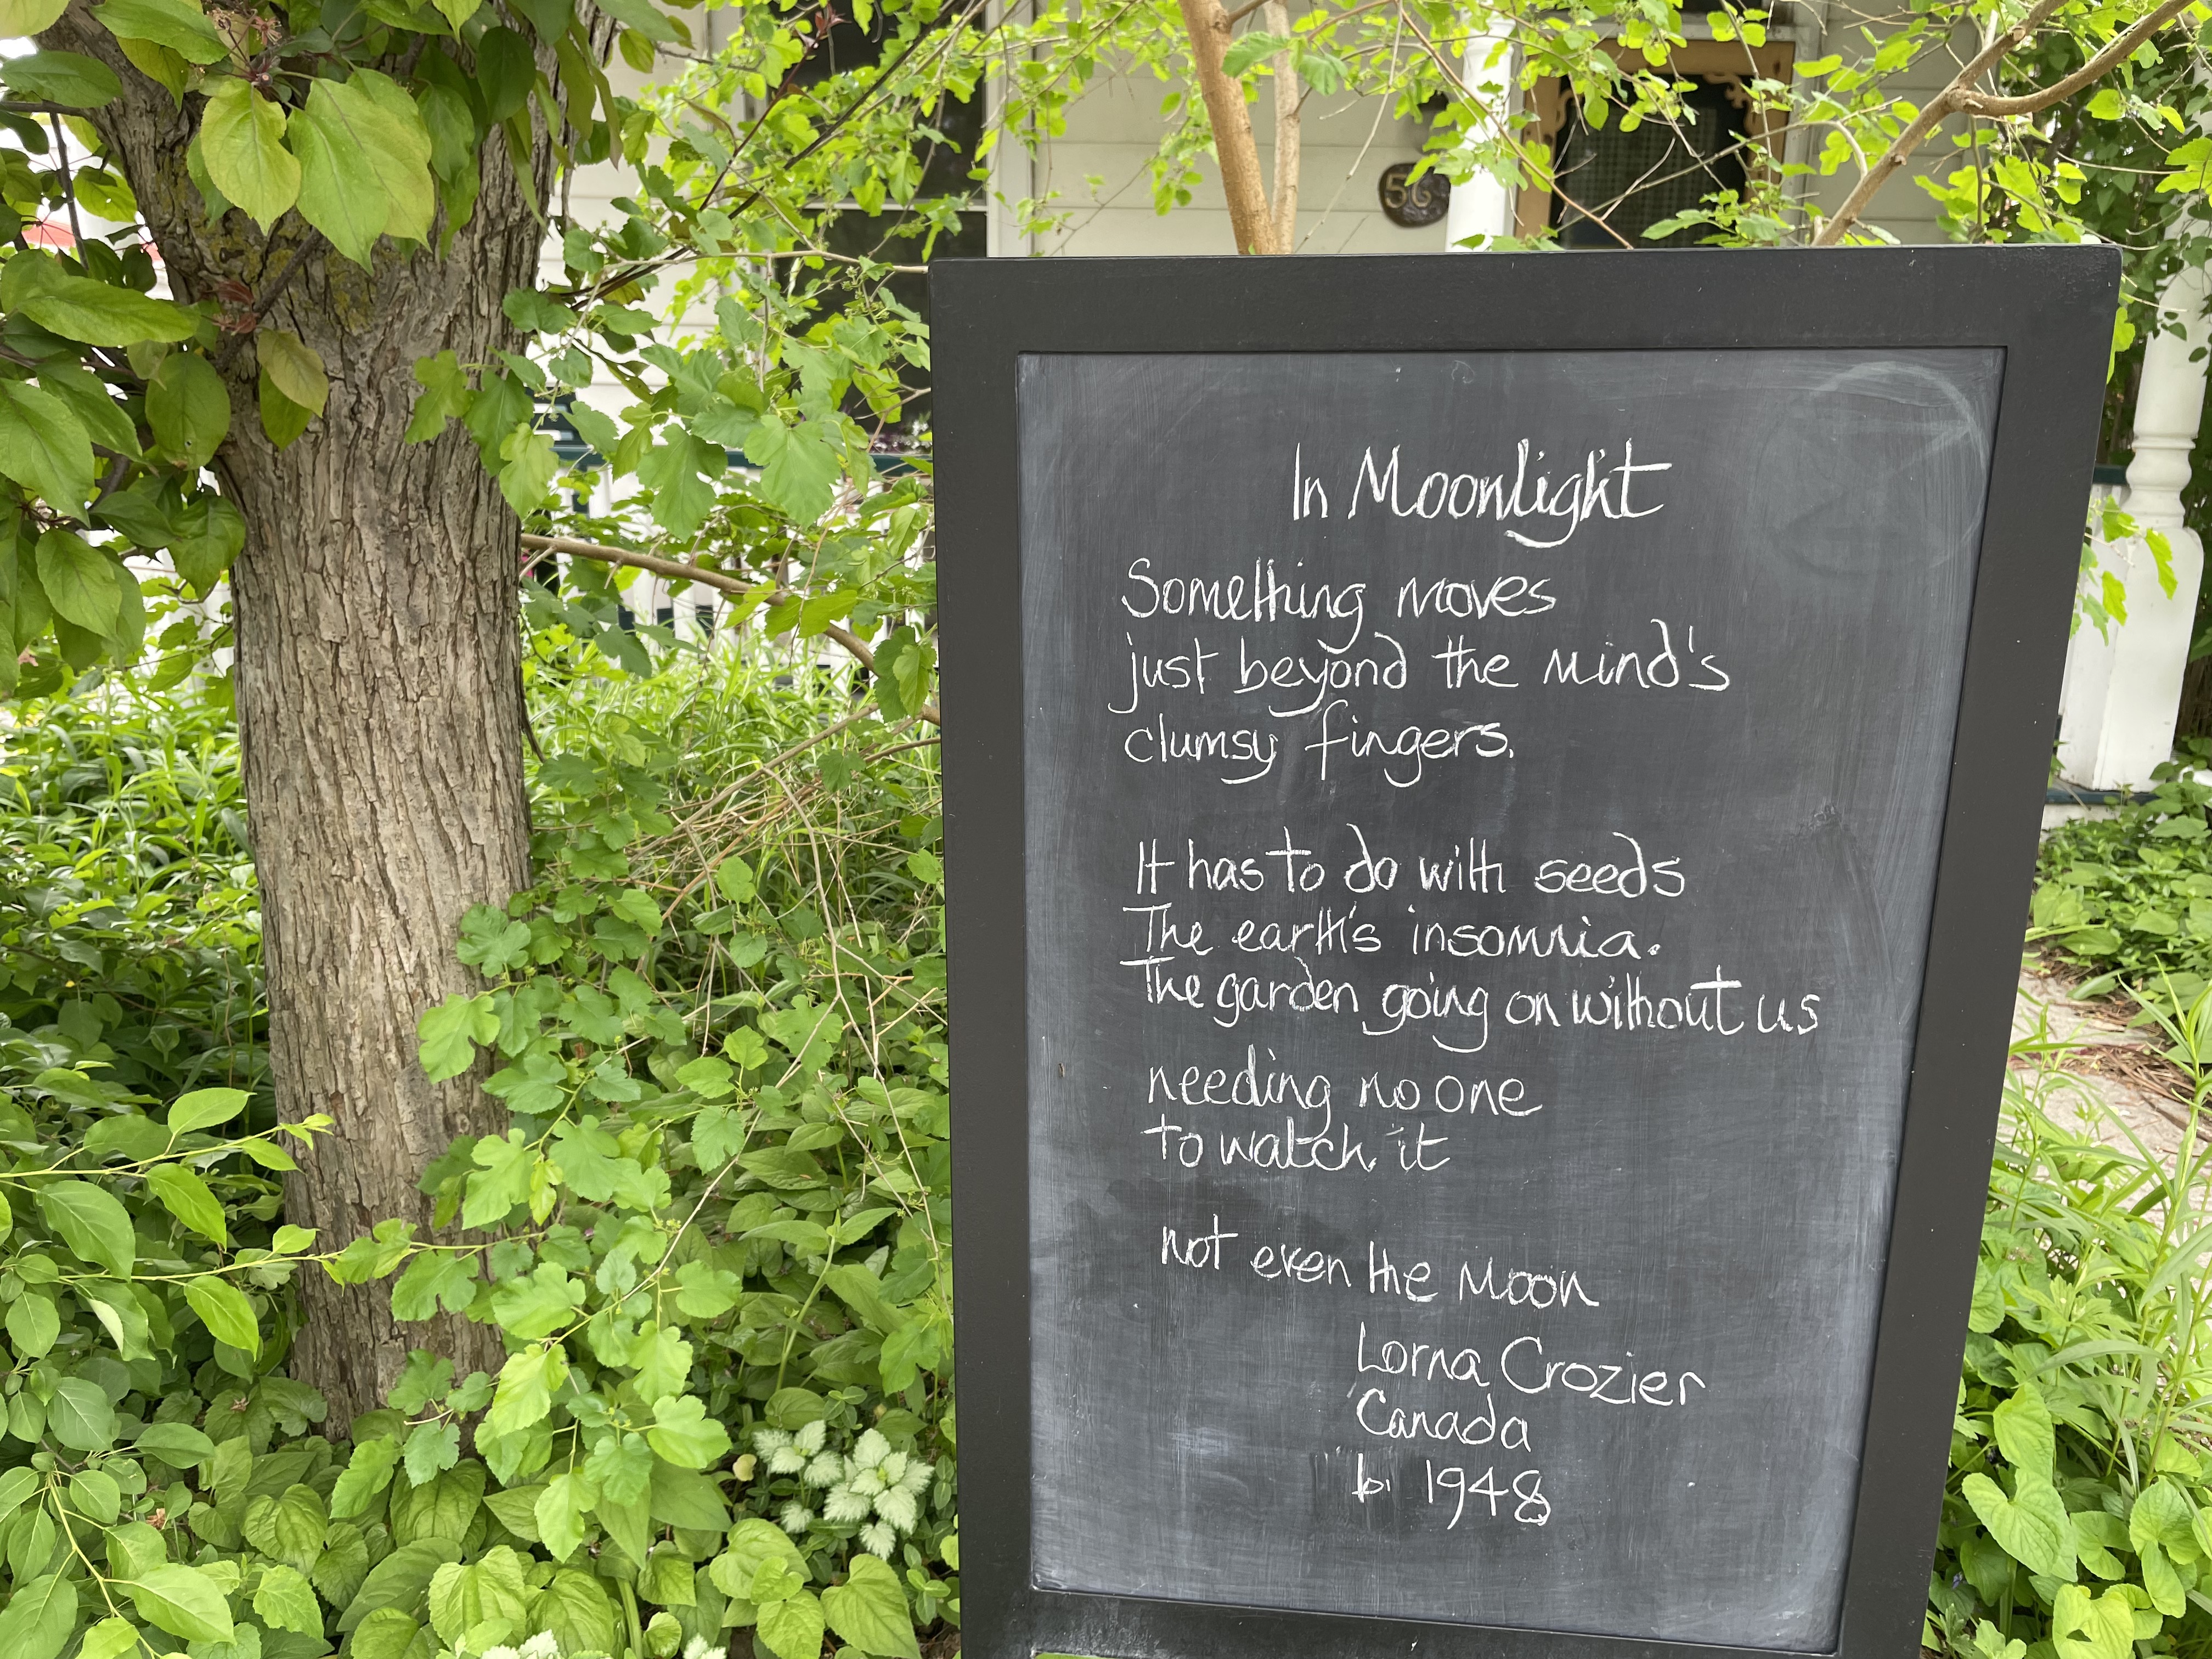 56
In Moonlight
Something moves
just beyond the mind's
clumsy fingers.
It has to do with seeds
The earth's insomnia.
The garden going on without us
needing no one
to watch it
not even the Moon
Lorna Crozier
Canada
b. 1948